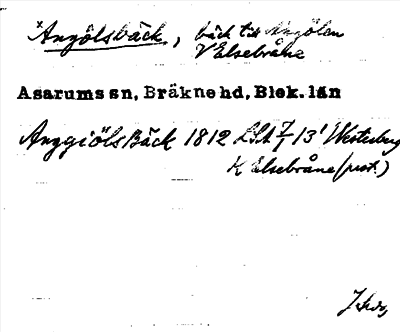 *Angölsbäck, bäck till Angölen
V Elsebråne
Asarums sn, Bräkne hd, Blek. län
Anggiöls Bäck 1812 LSA 7/1 13¹ Westerberg
K Elsebråne (prot.)